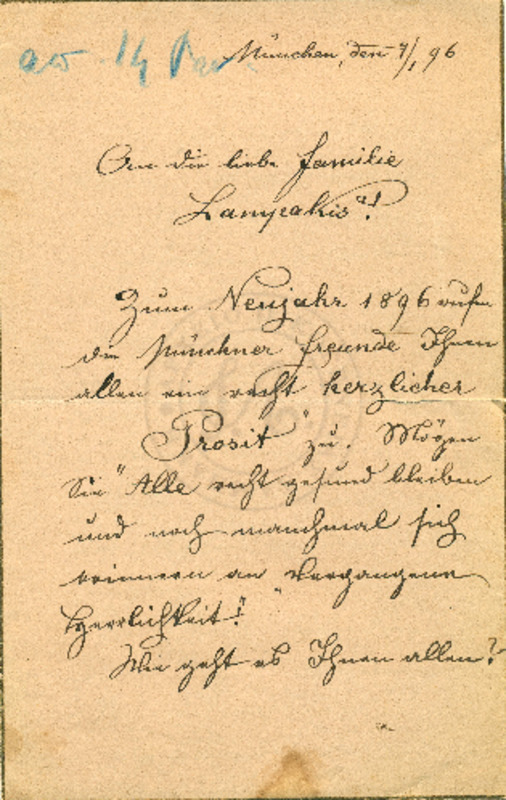 München, den 7/1 96
An die liebe Familie
Lampakis!
Zum Neujahr 1896 rufen
die Münchner Freunde Ihnen
allen ein recht herzlicher
"Prosit" zu. Mögen
Sie Alle recht gesund bleiben
und noch manchmal sich
erinnern an "vergangene
Herrlichkeit"!
Wie geht es Ihnen allen?